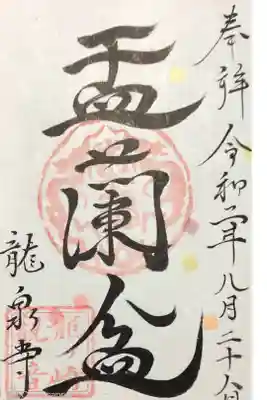 奉拝 令和二年八月二十八日
盂蘭盆
龍泉寺